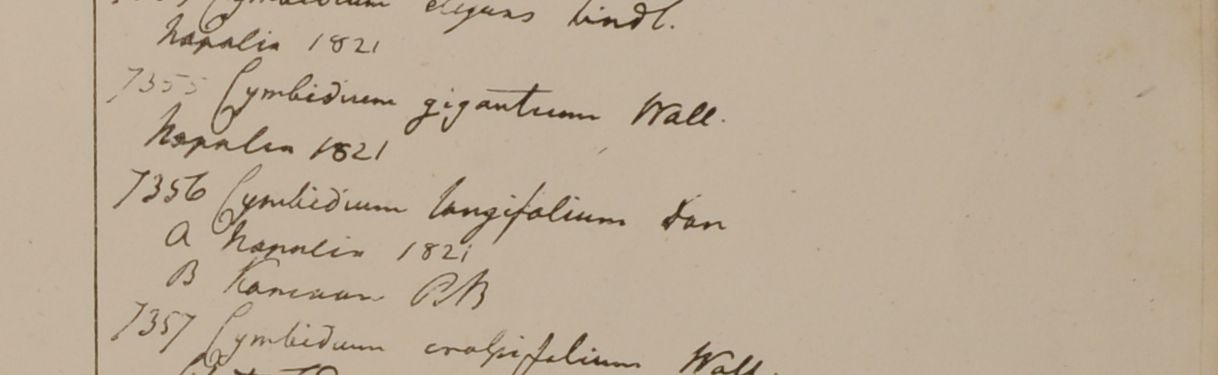 Cymbidium elegans Lindl.
Napalia 1821
7355 Cymbidium giganteum Wall.
Napalia 1821
7356 Cymbidium longifolium Don
a Napalia 1821
B Kamaon RB
7357 Cymbidium Wall.